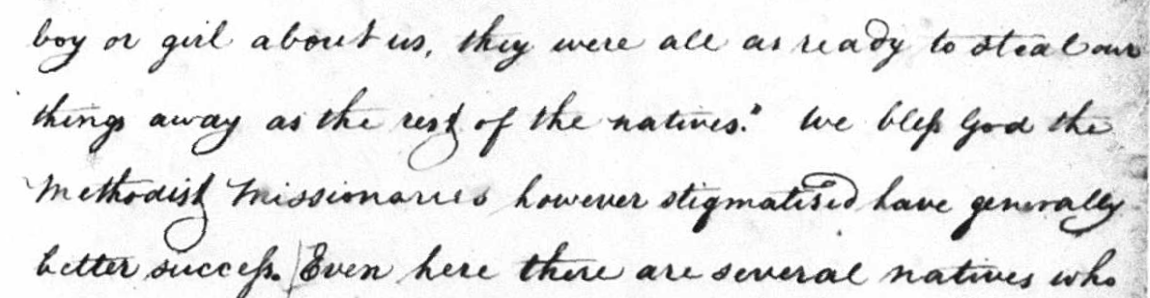 boy or girl about us, they were all as ready to steal our
things away as the rest of the natives." We bless God the
Methodist Missionaries however stigmatised have generally
better success. Even here there are several natives who